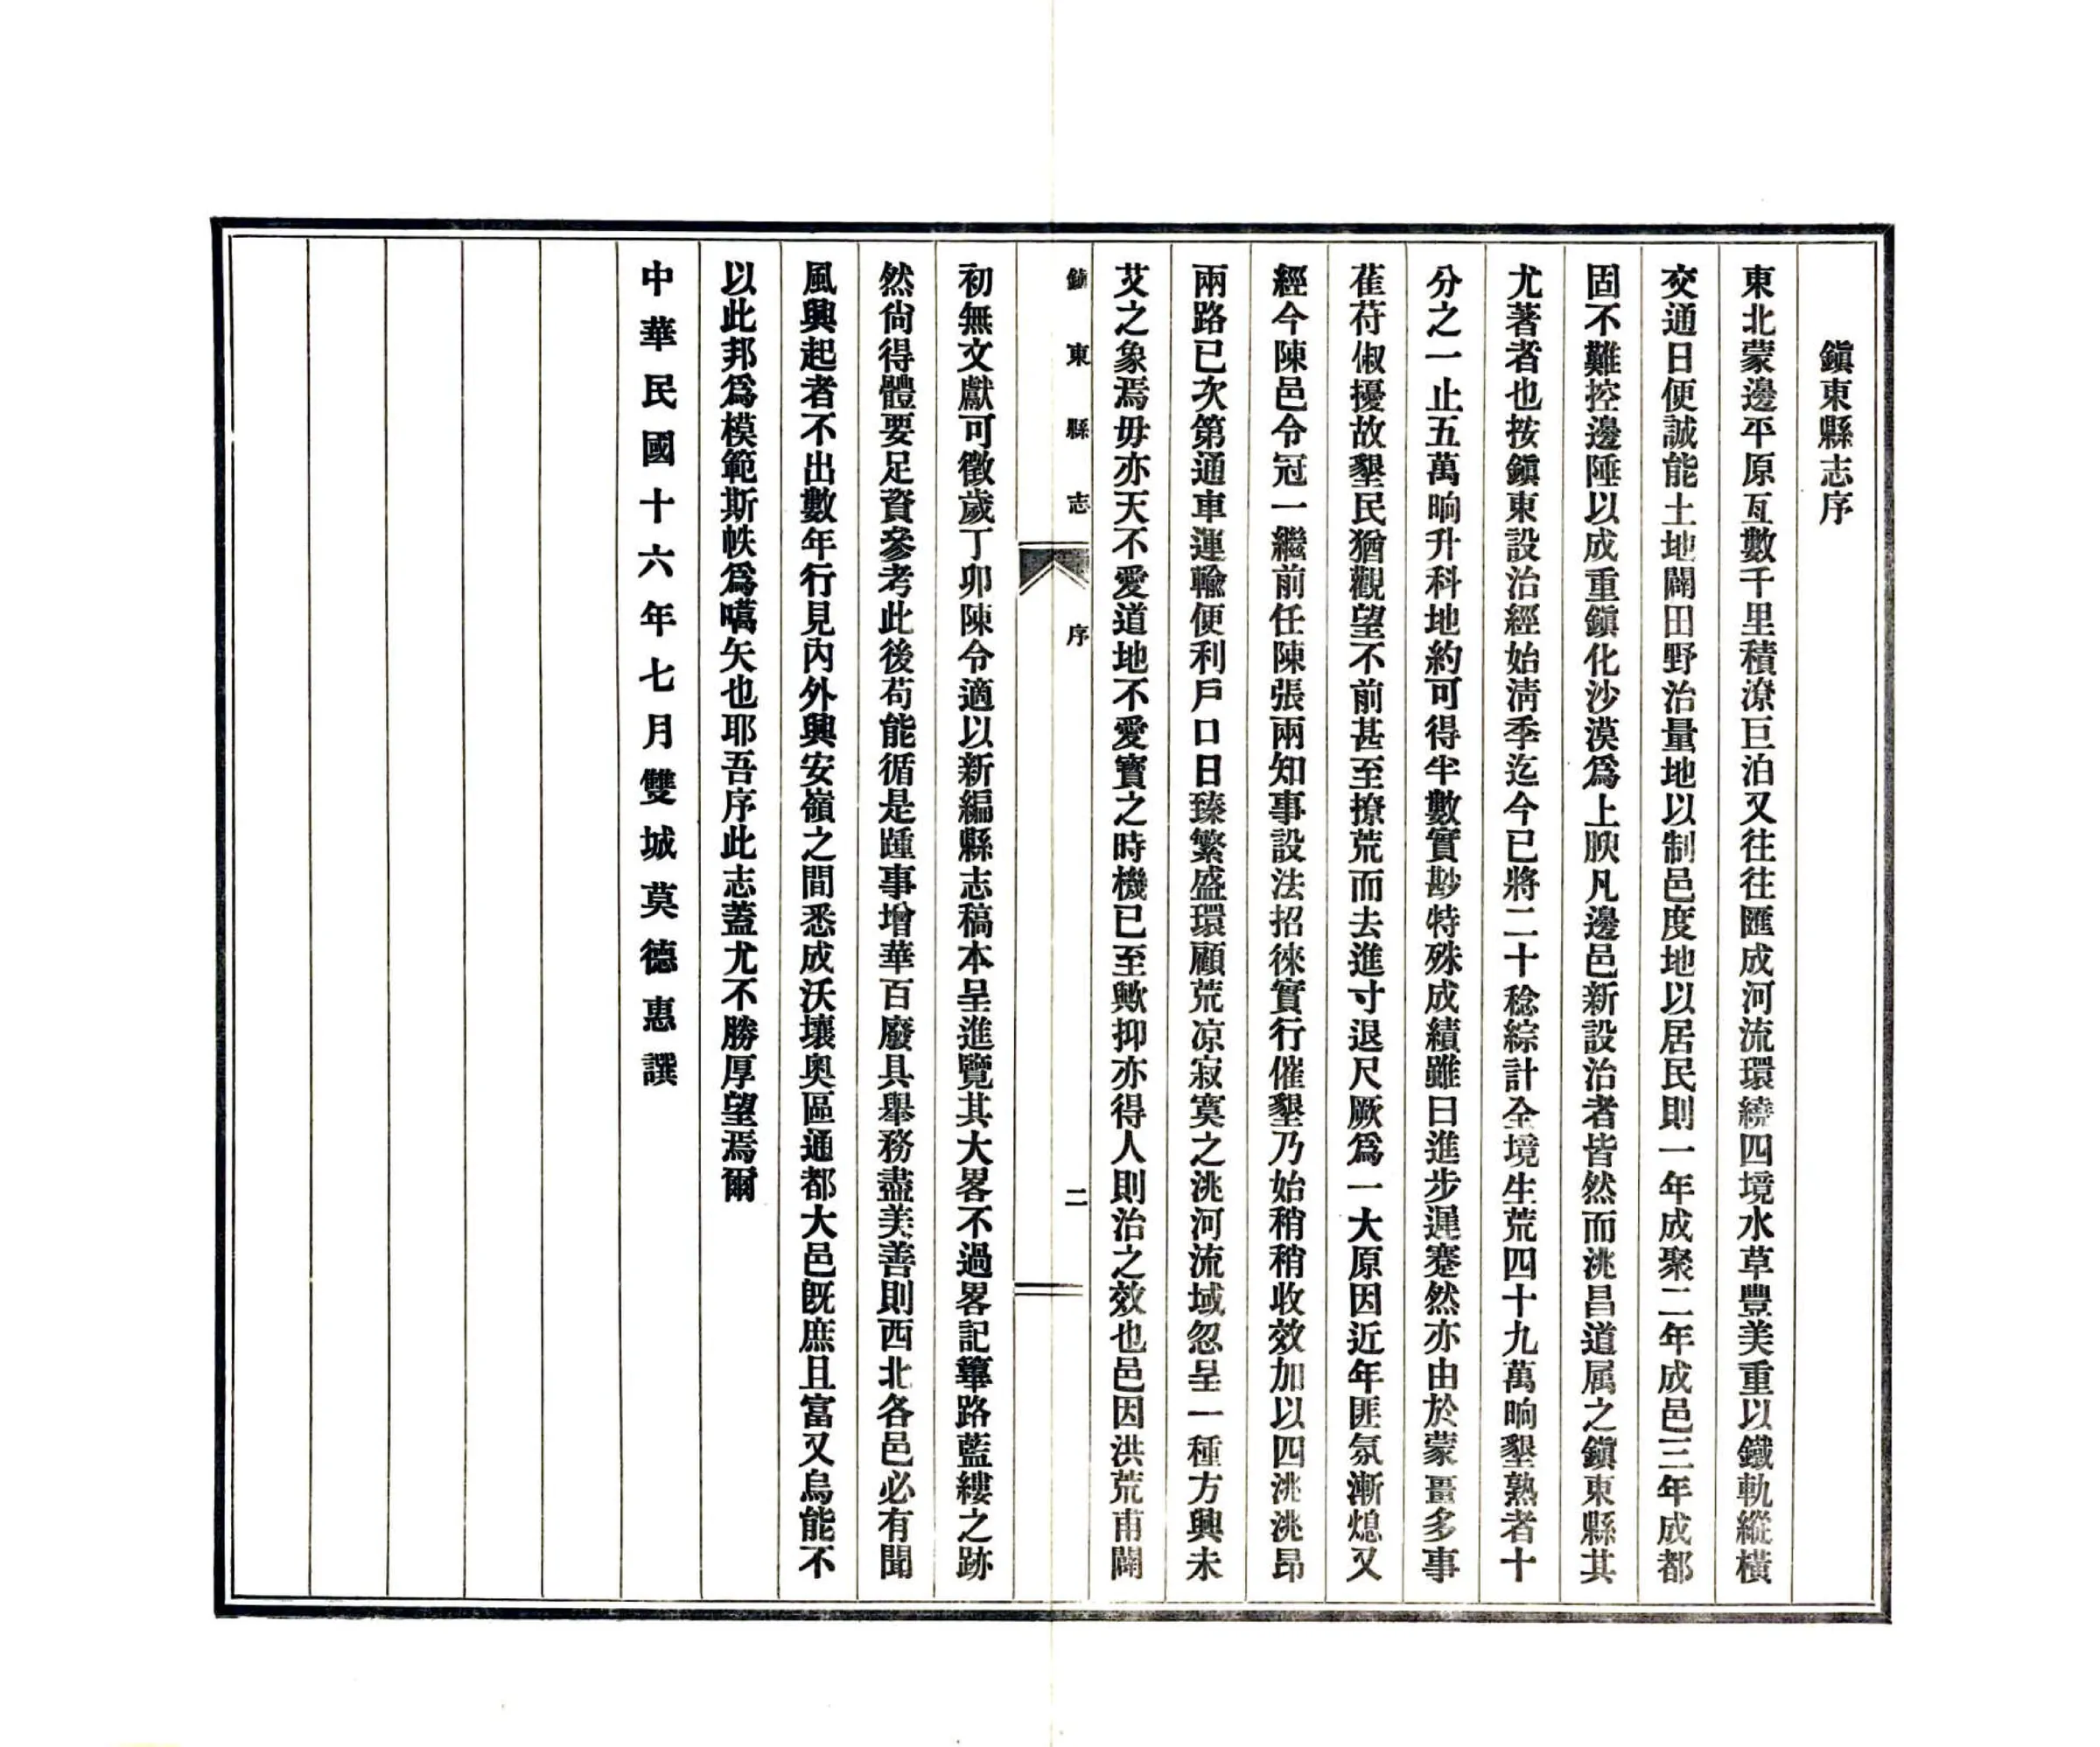 鎭東縣志序
東北蒙邊平原亙數千里積潦巨泊又往往匯成河流環繞四境水草豐美重以鐵軌縱橫
交通日便誠能土地闢田野治量地以制邑度地以居民則一年成聚二年成邑三年成都
固不難控邊陲以成重鎭化沙漠爲上腴凡邊邑新設治者皆然而洮昌道属之鎭東縣其
尤著者也按鎭東設治經始淸季迄今已將二十稔綜計全境生荒四十九萬晌墾熟者十
分之一止五萬晌升科地約可得半數實尠特殊成績雖曰進步遲蹇然亦由於蒙畺多事
萑苻俶擾故墾民猶觀望不前甚至撩荒而去進寸退尺厥爲一大原因近年匪氛漸熄又
經今陳邑令冠一繼前任陳張兩知事設法招徠實行催墾乃始稍稍收效加以四洮洮昂
兩路已次第通車運輸便利戶口日臻繁盛環顧荒凉寂寞之洮河流域忽呈一種方興未
艾之象焉毋亦天不愛道地不愛寶之時機已至歟抑亦得人則治之效也邑因洪荒甫闢
鎭東縣志 序 二
初無文獻可徵歲丁卯陳令適以新編縣志稿本呈進覽其大畧不過畧記蓽路藍縷之跡
然尙得體要足資參考此後苟能循是踵事增華百廢具舉務盡美善則西北各邑必有聞
風興起者不出數年行見內外興安嶺之間悉成沃壤奧區通都大邑旣庶且富又烏能不
以此邦爲模範斯帙爲嚆矢也耶吾序此志蓋尤不勝厚望焉爾
中華民國十六年七月雙城莫德惠譔